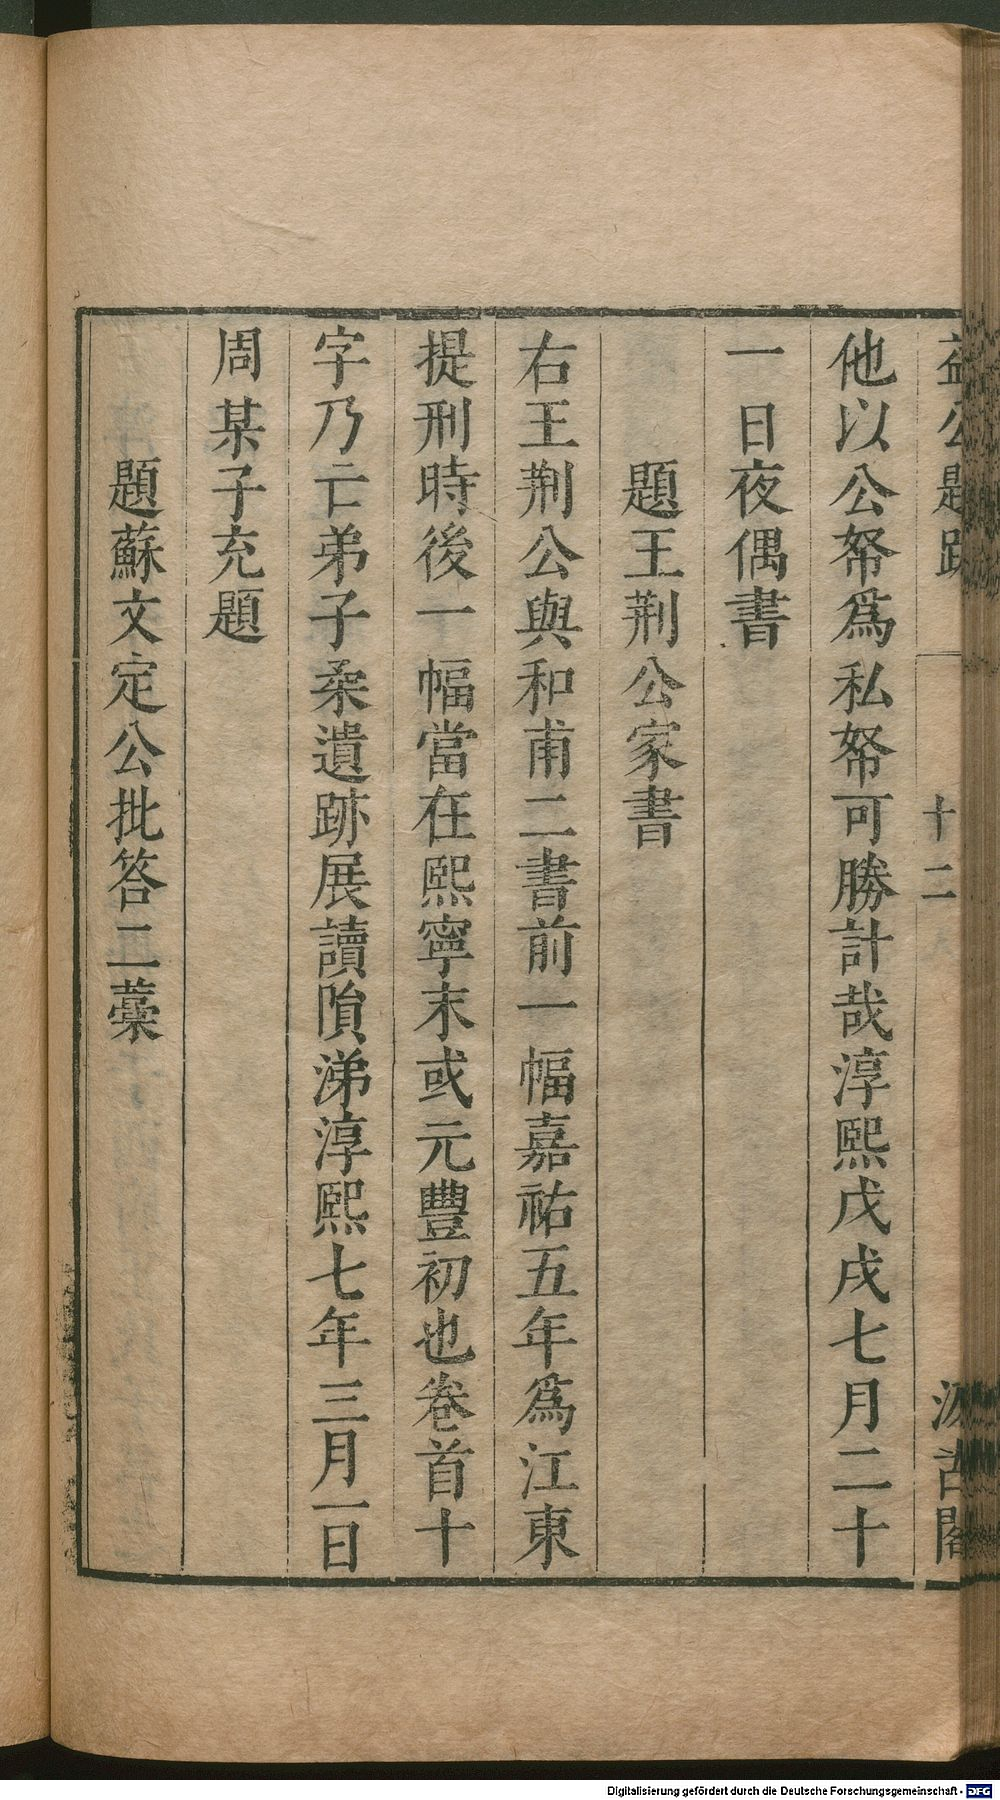 益公題跋 十二 汲古閣
他以公帑爲私帑可勝計哉淳熙戊戌七月二十
一日夜偶書
題王荆公家書
右王荆公與和甫二書前一幅嘉祐五年爲江東
提刑時後一幅當在熙寧末或元豐初也卷首十
字乃亡弟子柔遺跡展讀隕涕淳熙七年三月一日
周某子充題
題蘇文定公批答二藁
Digitalisierung gefördert durch die Deutsche Forschungsgemeinschaft - DFG